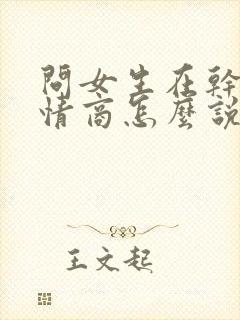 問女生在幹
情商怎麼說
王文起